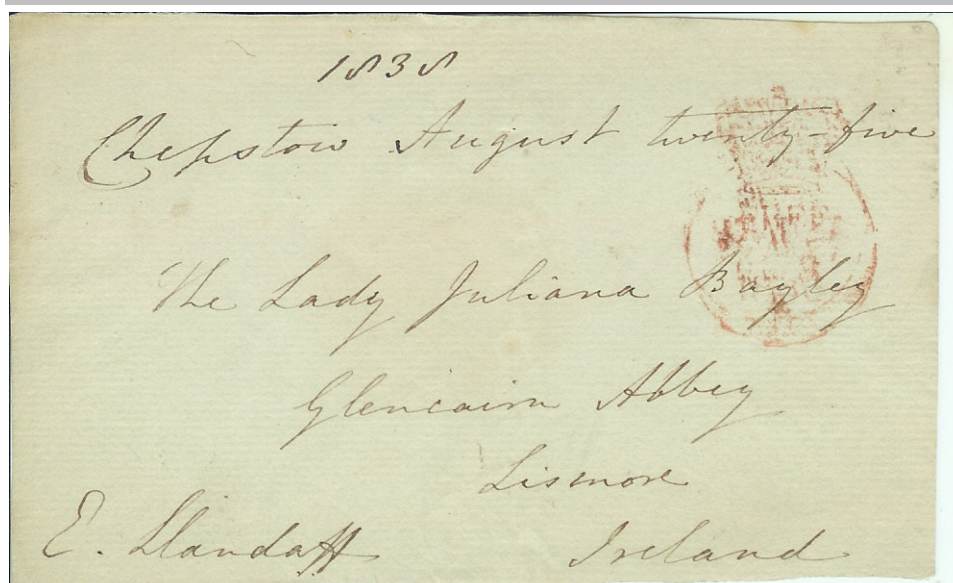 1838
Chepstow August twenty-five
The Lady Juliana Bayley
Glencairn Abbey
Lismore
E. Llandaff Ireland